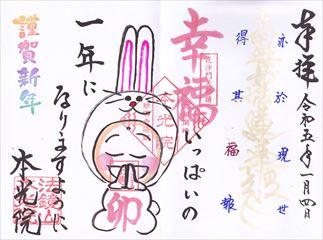 奉拝 令和五年一月四日
亦於現世
得其福報
幸福いっぱいの
一年に
なりますように
卯
謹賀新年
本光院